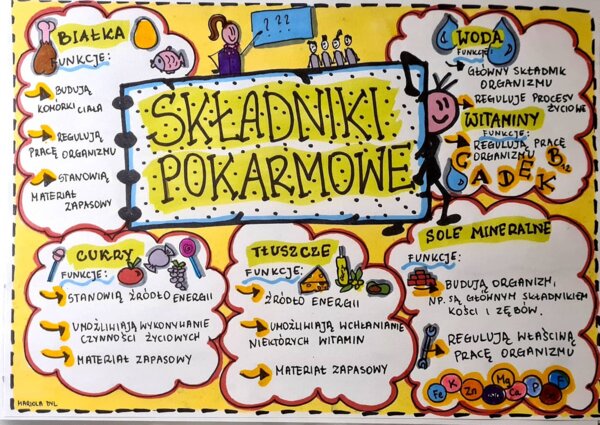 BIAŁKA
FUNKCJE:
BUDUJĄ
KOMÓRKI CIAŁA
REGULUJĄ
PRACĘ ORGANIZMU
STANOWIĄ
MATERIAŁ ZAPASOWY
???
SKŁADNIKI
POKARMOWE
WODA
FUNKCJE:
GŁÓWNY SKŁADNIK
ORGANIZMU
REGULUJE PROCESY
ŻYCIOWE
WITAMINY
FUNKCJE:
REGULUJĄ PRACĘ
ORGANIZMU
C A D E K B12
CUKRY
FUNKCJE:
STANOWIĄ ŹRÓDŁO ENERGII
UMOŻLIWIAJĄ WYKONYWANIE
CZYNNOŚCI ŻYCIOWYCH
MATERIAŁ ZAPASOWY
TŁUSZCZE
FUNKCJE:
ŹRÓDŁO ENERGII
UMOŻLIWIAJĄ WCHŁANIANIE
NIEKTÓRYCH WITAMIN
MATERIAŁ ZAPASOWY
SOLE MINERALNE
FUNKCJE:
BUDUJĄ ORGANIZM,
NP. SĄ GŁÓWNYM SKŁADNIKIEM
KOŚCI I ZĘBÓW.
REGULUJĄ WŁAŚCIWĄ
PRACĘ ORGANIZMU
Fe K Zn Mg Ca P F
MARIOLA DYL